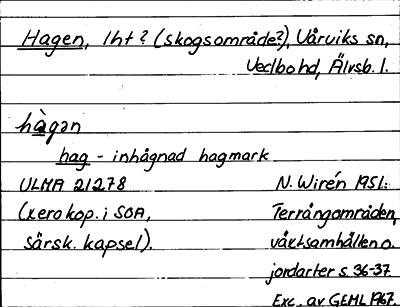 Hagen, lht? (skogsområde?), Vårviks sn,
Vedbo hd, Älvsb. l.
hàgən
hag - inhägnad hagmark
ULMA 21278
(xerokop. i SOA,
särsk. kapsel).
N. Wirén 1951:
Terrängområden,
växtsamhällen o.
jordarter s. 36-37
Exc. av GEML 1967.